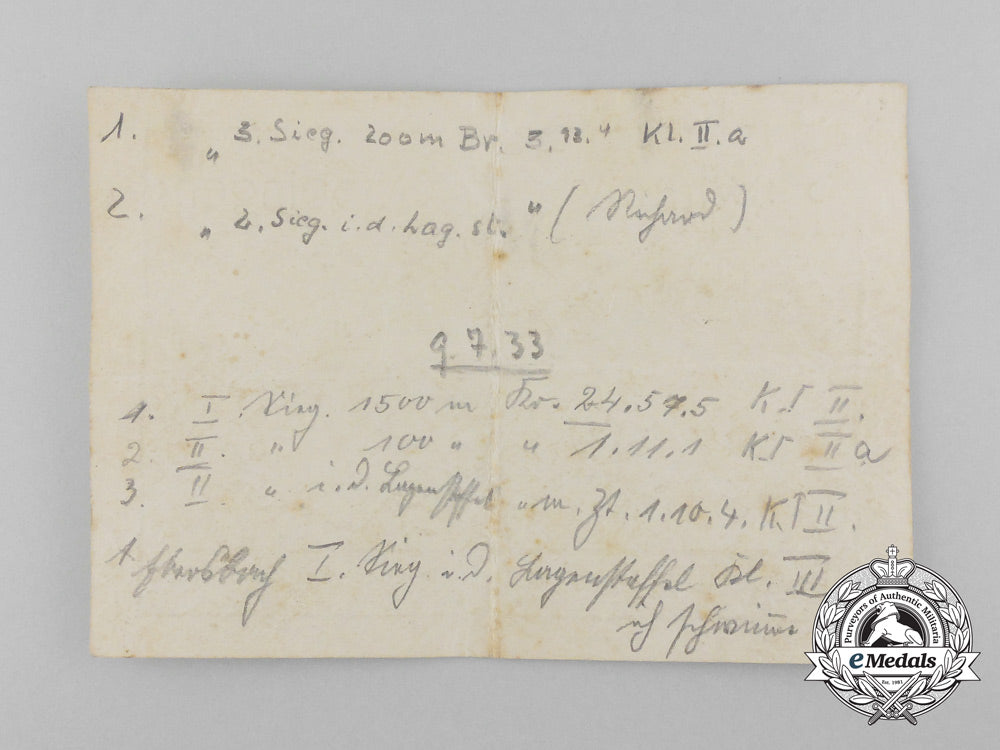 1. „ 3. Sieg. 200m Br. 3.12.4 Kl. II.a
2. „ 2. Sieg. i.d. Lag. st. " (Richard)
9.7.33
1. I. Sieg. 1500 m Kr. 24.57.5 Kl II.
2. II. " 100 " " 1.11.1 Kl II a
3. II. " i.d. Lagenstaffel m. Zt. 1.10.4. Kl II.
1. Ebersbach I. Sieg i.d. Lagenstaffel Kl. III
ich schwimme
Purveyors of Authentic Militaria
eMedals
Est. 1981